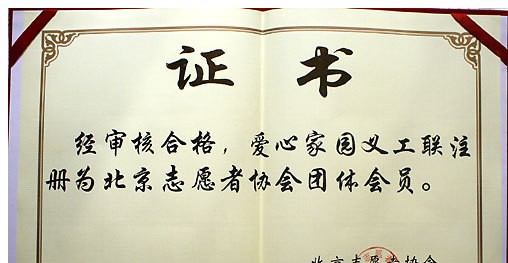 证书
经审核合格，爱心家园义工联注
册为北京志愿者协会团体会员。
北京志愿者协会